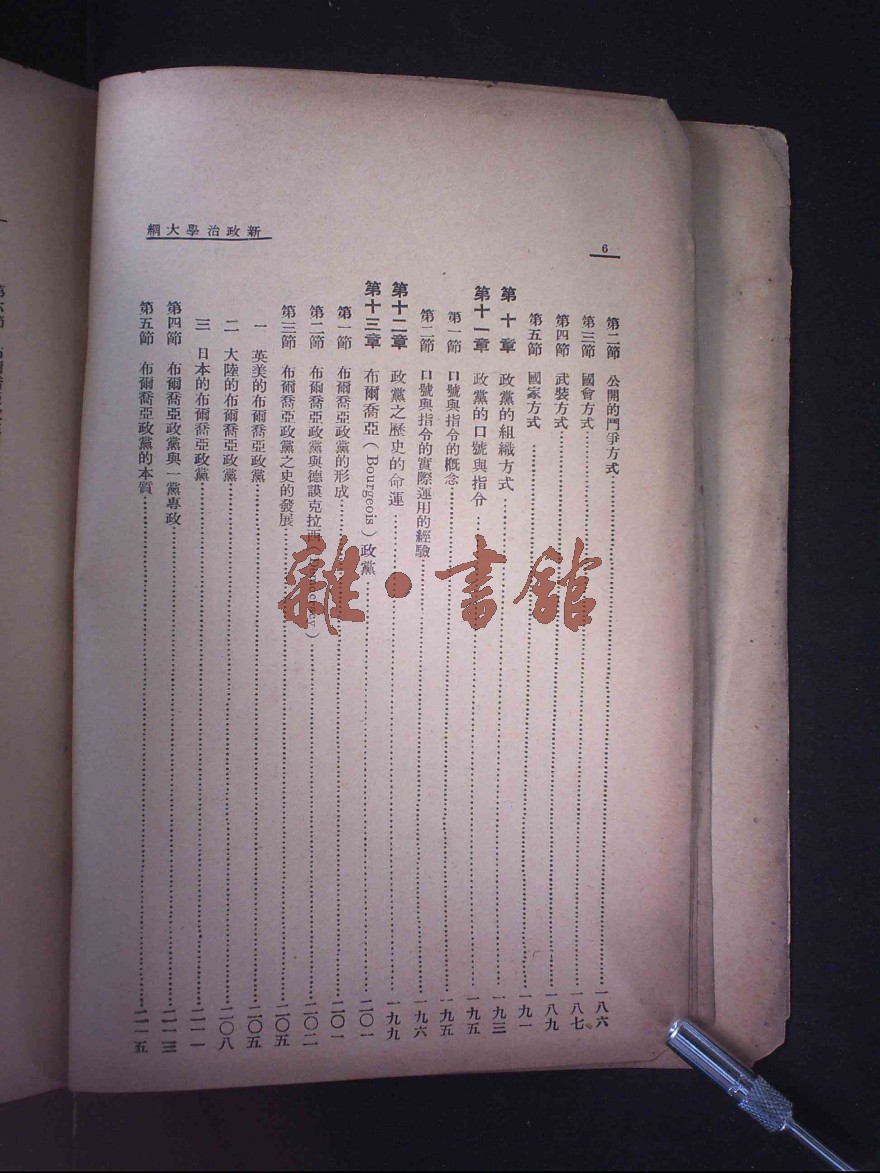 新政治學大綱
6
第二節 公開的鬥爭方式……一八六
第三節 國會方式……一八七
第四節 武裝方式……一八九
第五節 國家方式……一九一
第十章 政黨的組織方式……一九三
第十一章 政黨的口號與指令……一九五
第一節 口號與指令的概念……一九五
第二節 口號與指令的實際運用的經驗……一九六
第十二章 政黨之歷史的命運……一九九
第十三章 布爾喬亞(Bourgeois)政黨……二〇一
第一節 布爾喬亞政黨的形成……二〇一
第二節 布爾喬亞政黨與德謨克拉西……二〇二
第三節 布爾喬亞政黨之史的發展……二〇五
一 英美的布爾喬亞政黨……二〇五
二 大陸的布爾喬亞政黨……二〇八
三 日本的布爾喬亞政黨……二一一
第四節 布爾喬亞政黨與一黨專政……二一三
第五節 布爾喬亞政黨的本質……二一五
雜·書館